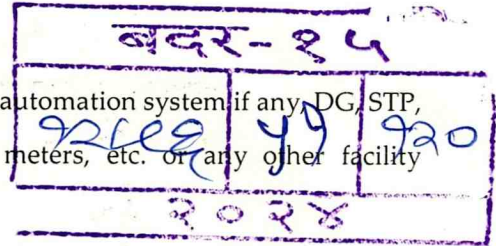 बदर-१५
automation system if any, DG, STP,
meters, etc. or any other facility
१२०
२०२४